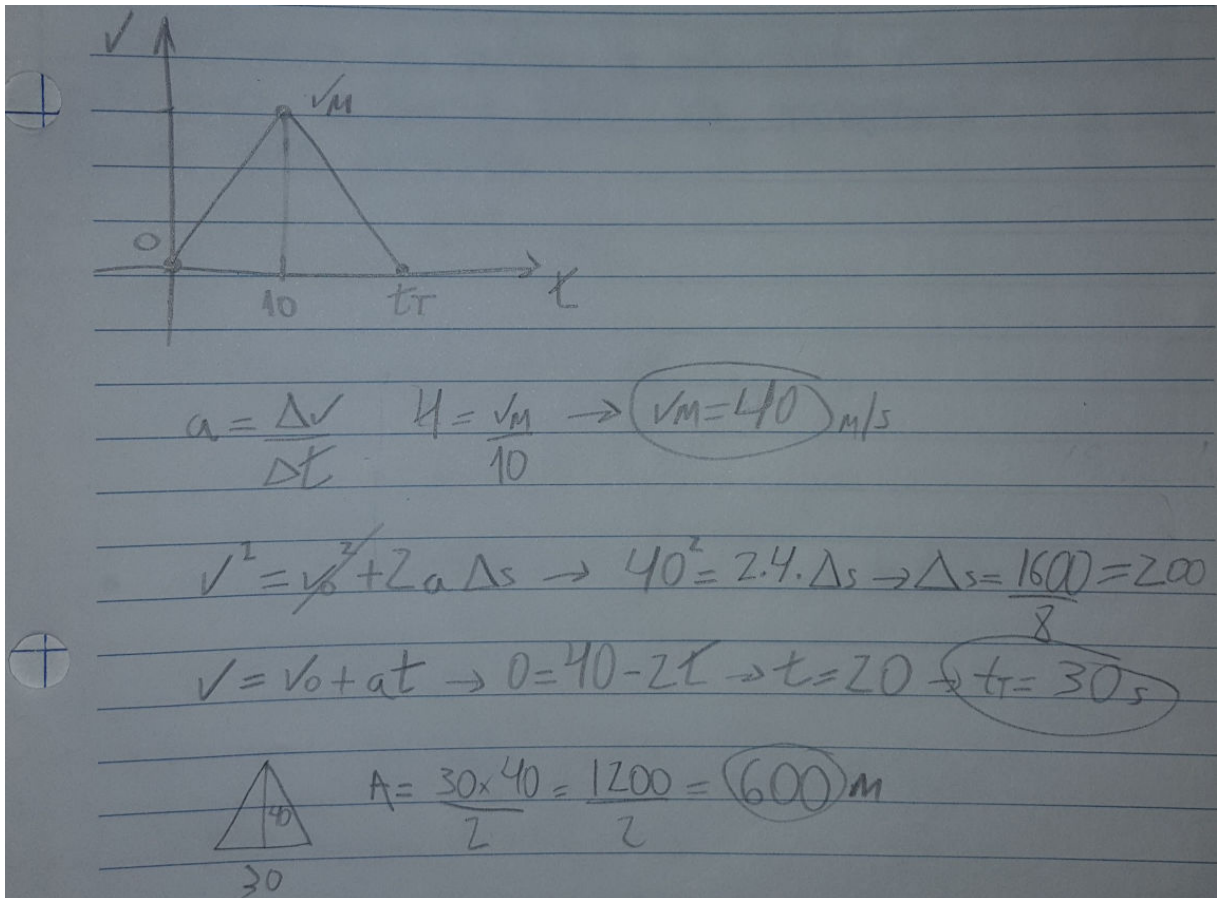 V
VM
0
10 tT t
a = Δv/Δt 4 = VM/10 → VM=40 M/s
V² = V0² + 2aΔs → 40² = 2.4.Δs → Δs = 1600/8 = 200
V = V0 + at → 0 = 40 - 2t → t = 20 → tT = 30s
40 A = 30x40/2 = 1200/2 = 600 M
30